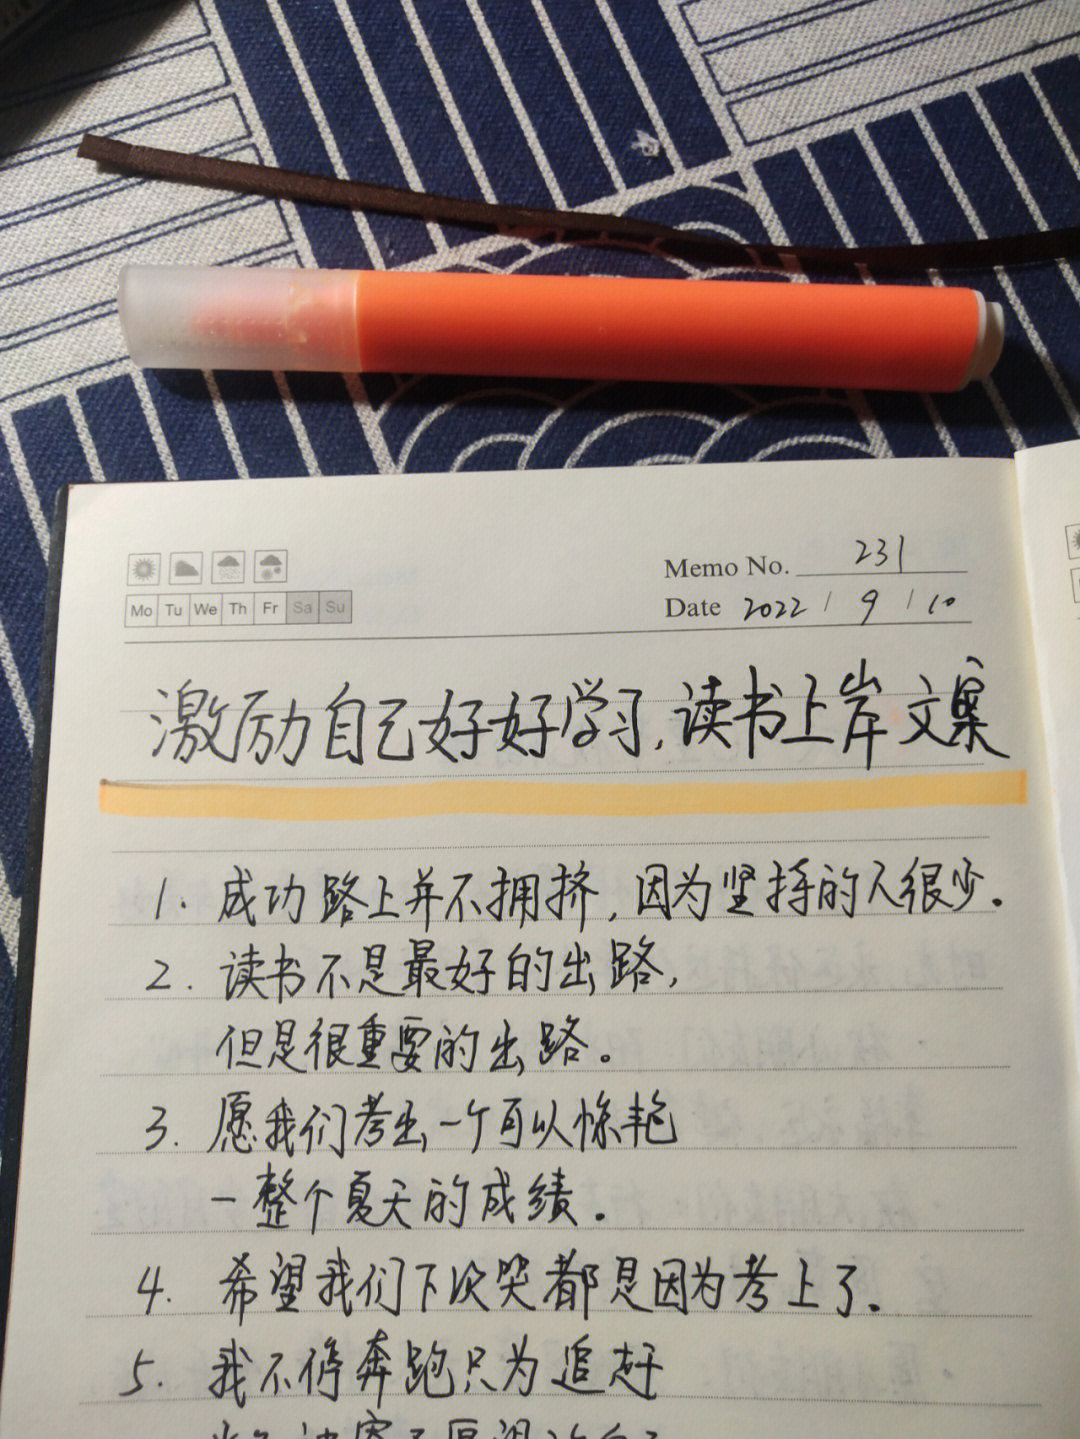 Memo No. 231
Mo Tu We Th Fr Sa Su
Date 2022 / 9 / 10
激励自己好好学习,读书上岸文案
1. 成功路上并不拥挤,因为坚持的人很少.
2. 读书不是最好的出路,
但是很重要的出路。
3. 愿我们考出一个可以惊艳
一整个夏天的成绩.
4. 希望我们下次哭都是因为考上了.
5. 我不停奔跑只为追赶